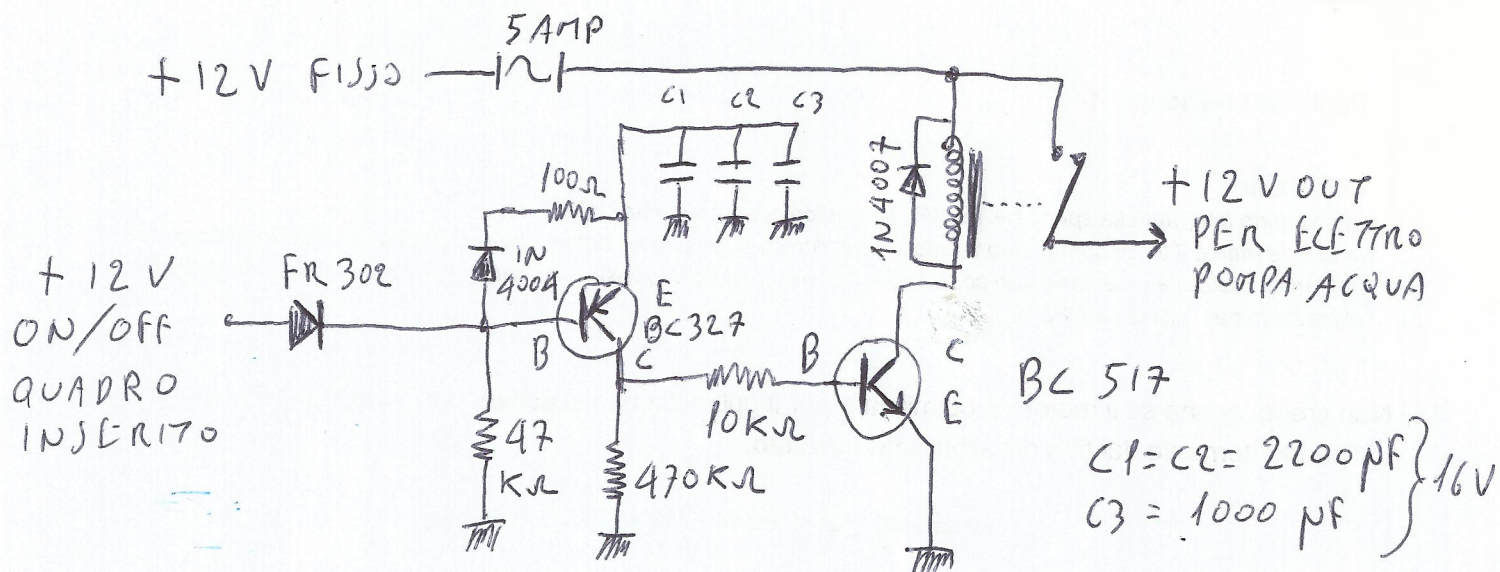 5 AMP
+12V FISSO
C1 C2 C3
100Ω
1N4007
+12V OUT
PER ELETTRO
POMPA ACQUA
+ 12 V
ON/OFF
QUADRO
INSERITO
FR302
1N
4004
E
BC327
B
C
B
C
E
BC 517
10KΩ
47
KΩ
470KΩ
C1=C2= 2200µF
C3 = 1000 µF
16V